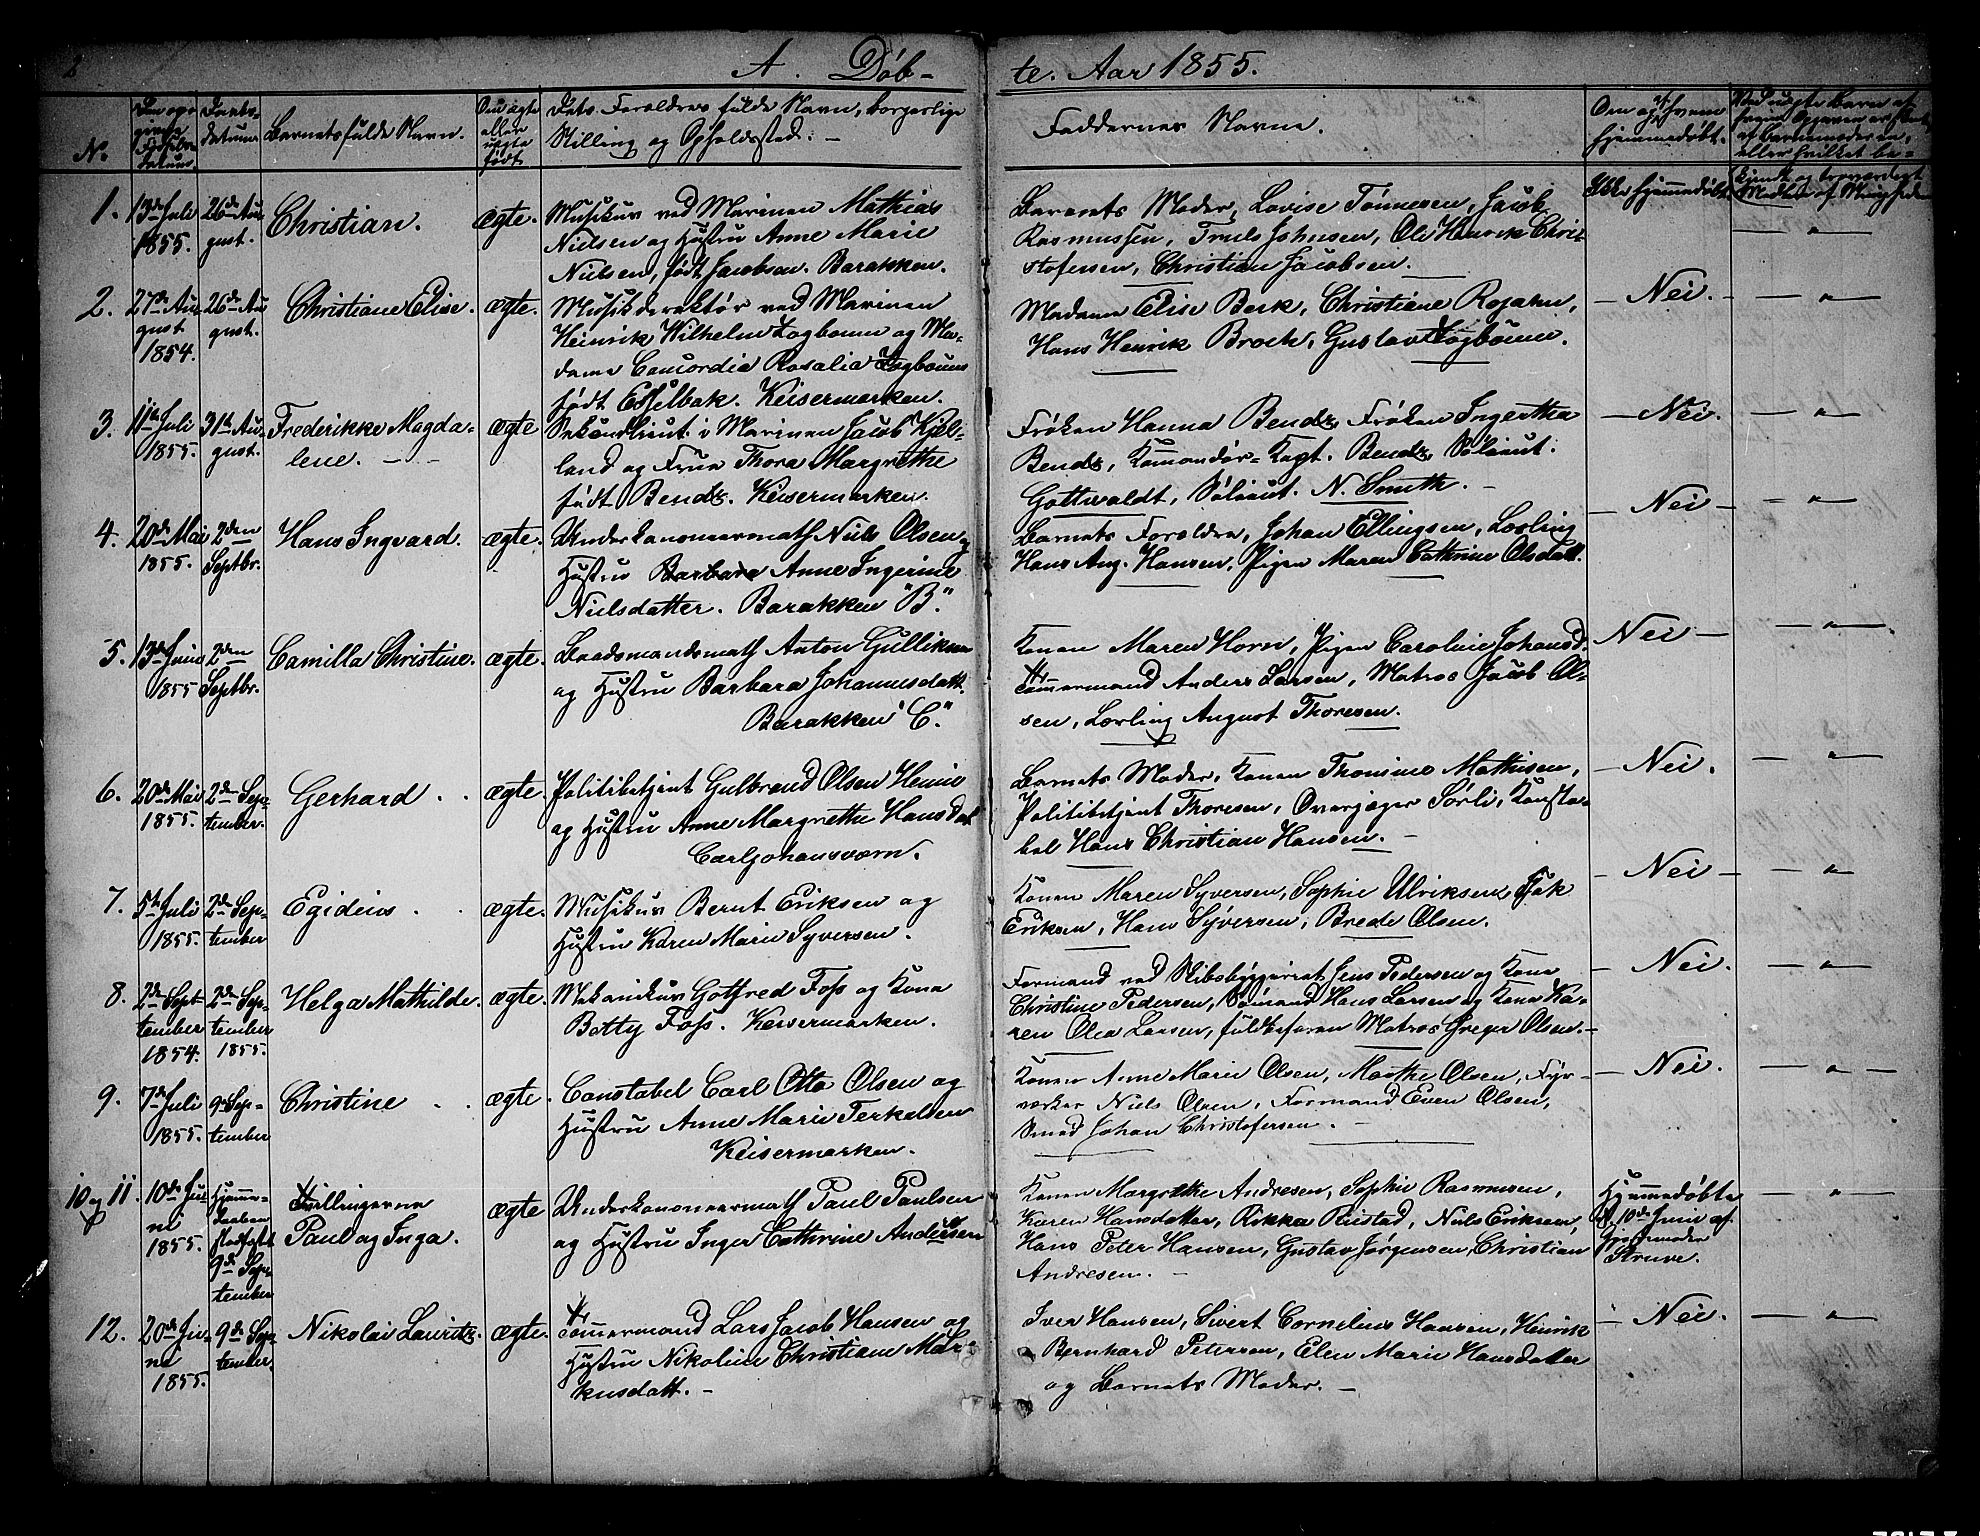 2
A. Døb-
te. Aar 1855.
No.
Den opgivne Fødselsdatum.
Daabsdatum
Barnets fulde Navn.
Om ægte eller uægte født
Dets Forældres fulde Navn, borgerlige
Stilling og Opholdssted. -
Faddernes Navne.
Om og af hvem
hjemmedøbt.
1. 13de Juli 1855. 26de August. Christian. ægte.
Musikus ved Marinen Mathias
Nielsen og Hustru Anne Marie
Nielsen, født Jacobsen. Barakken.
Barnets Moder, Lovise Tønnesen, Jacob
Rasmussen, Truls Johnsen, Ole Henrik Chri-
stofersen, Christian Jacobsen.
Ikke hjemmedøbt
2. 27de August 1854. 26de August. Christiane Elise. ægte.
Musikdirektør ved Marinen
Heinrik Wilhelm Logboum og Ma-
dame Concordia Rosalia Logboum
født Esselbak. Keisermarken.
Madame Elise Berk, Christiane Rojahn,
Hans Henrik Broch, Gustav Logboum.
- Nei. - "
3. 11te Juli 1855. 31te August. Frederikke Magda-
lene. - ægte
Sekondlieut. i Marinen Jacob Kjel-
land og Frue Thora Margrethe
født Bendz. Keisermarken.
Frøken Hanna Bendz, Frøken Ingertha
Bendz, Komandør-Kapt. Bendz, Sølieut.
Gottwaldt, Sølieut. N. Smith. -
- Nei. - "
4. 20de Mai 1855. 2den Septbr. Hans Ingvard. ægte.
Underkanoneermath Niels Olsen og
Hustru Barbara Anne Ingerine
Nielsdatter. Barakken "B."
Barnets Forældre, Johan Ellingsen, Lærling
Hans Aug. Hansen, Pigen Maren Cathrine Olsdatt.
- Nei - "
5. 13de Juni 1855 2den Septbr. Camilla Christine. ægte.
Baadsmandsmath Anton Gulliksen
og Hustru Barbara Johannesdatt.
Barakken "C."
Konen Maren Horn, Pigen Caroline Johansd.
Tømmermand Anders Larsen, Matros Jacob Ol-
sen, Lærling August Thoresen.
Nei - "
6. 20de Mai 1855. 2den September. Gerhard . . ægte.
Politibetjent Gulbrand Olsen Hemie
og Hustru Anne Margrethe Hansdat
Carljohansværn.
Barnets Moder, Konen Thomine Mathisen,
Politibetjent Thoresen, Overjæger Sørli, Konsta-
bel Hans Christian Hansen. -
- Nei. - "
7. 5te Juli 1855. 2den September Egideus . . ægte.
Musikus Bernt Eriksen og
Hustru Karen Marie Syversen.
Konen Maren Syversen, Sophie Ulriksen, Isak
Eriksen, Hans Syversen, Brede Olsen.
- Nei - "
8. 2den September 1854. 2den September 1855. Helga Mathilde. ægte.
Mekanikus Gotfred Foss og Kone
Betty Foss. Keisermarken.
Formand ved Skibsbyggeriet Jens Pedersen og Kone
Christine Pedersen, Sømand Hans Larsen og Kone Ka-
ren Olea Larsen, fuldbefaren Matros Greger Olsen. -
- Nei. - "
9. 7de Juli 1855. 9de September Christine . . ægte.
Constabel Carl Otto Olsen og
Hustru Anne Marie Terkelsen
Keisermarken.
Konen Anne Marie Olsen, Marthe Olsen, Fyr-
værker Niels Olsen, Formand Even Olsen,
Smed Johan Christofersen. -
- Nei. - " -
10 og 11. 10de Juni 1855. Hjemmedaaben stadfæstet 9de September
Tvillingerne
Paul og Inga. ægte
Underkanoneermath Paul Paulsen
og Hustru Inger Cathrine Andersen
Konen Margrethe Andresen, Sophie Rasmussen,
Karen Hansdatter, Rikka Ristad, Niels Eriksen,
Hans Peter Hansen, Gustav Jørgensen, Christian
Andresen. -
Hjemmedøbte
d. 10de Juni af
Gjordemoder
Struve.
12. 20de Juni 1855. 9de September. Nikolai Lauritz. ægte.
Tømmermand Lars Jacob Hansen og
Hustru Nikoline Christiane Mar-
kusdatt. -
Iver Hansen, Sivert Cornelius Hansen, Heinrik
Bernhard Petersen, Elen Marie Hansdatter
og Barnets Moder. -
- Nei. - "